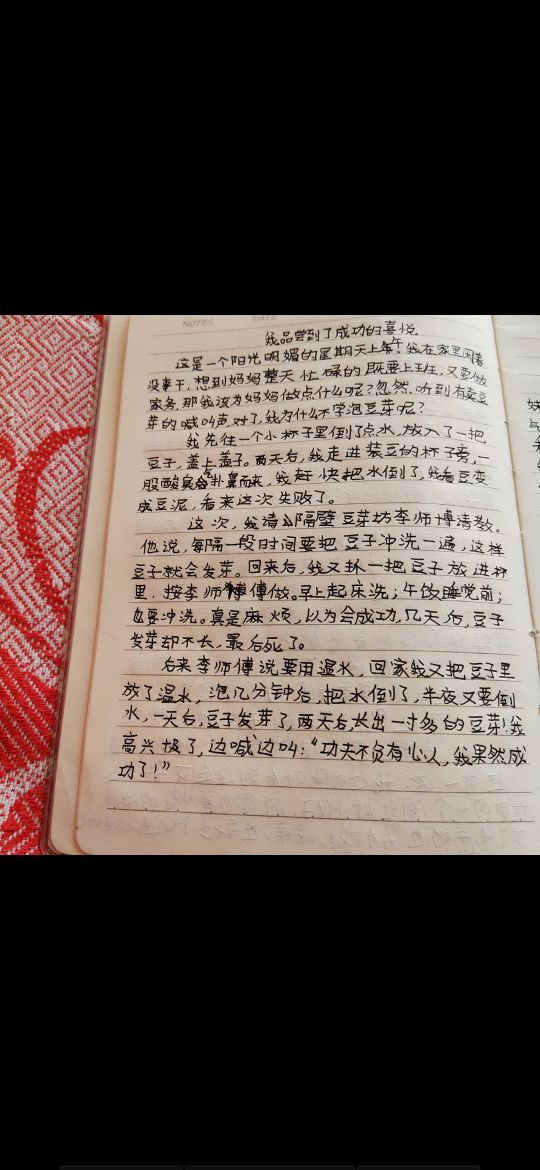 NOTES DATE
我品尝到了成功的喜悦
这是一个阳光明媚的星期天上午。我在家里闲着
没事干,想到妈妈整天忙碌的既要上班,又要做
家务,那我该为妈妈做点什么呢?忽然,听到有卖豆
芽的喊叫声,对了,我为什么不学泡豆芽呢?
我先往一个小杯子里倒了点水,放入了一把
豆子,盖上盖子。两天后,我走进装豆的杯子旁,一
股酸臭扑鼻而来,我赶快把水倒了,我看豆变
成豆泥,看来这次失败了。
这次,我请隔壁豆芽坊李师博清教。
他说,每隔一段时间要把豆子冲洗一遍,这样
豆子就会发芽。回来后,我又抓一把豆子放进杯
里,按李师傅做。早上起床洗;午饭睡觉前;
也要冲洗。真是麻烦,以为会成功,几天后,豆子
发芽却不长,最后死了。
后来李师傅说要用温水,回家我又把豆子里
放了温水,泡几分钟后,把水倒了,半夜又要倒
水,一天后,豆子发芽了,两天后,长出一寸多的豆芽!我
高兴极了,边喊边叫:“功夫不负有心人,我果然成
功了!”